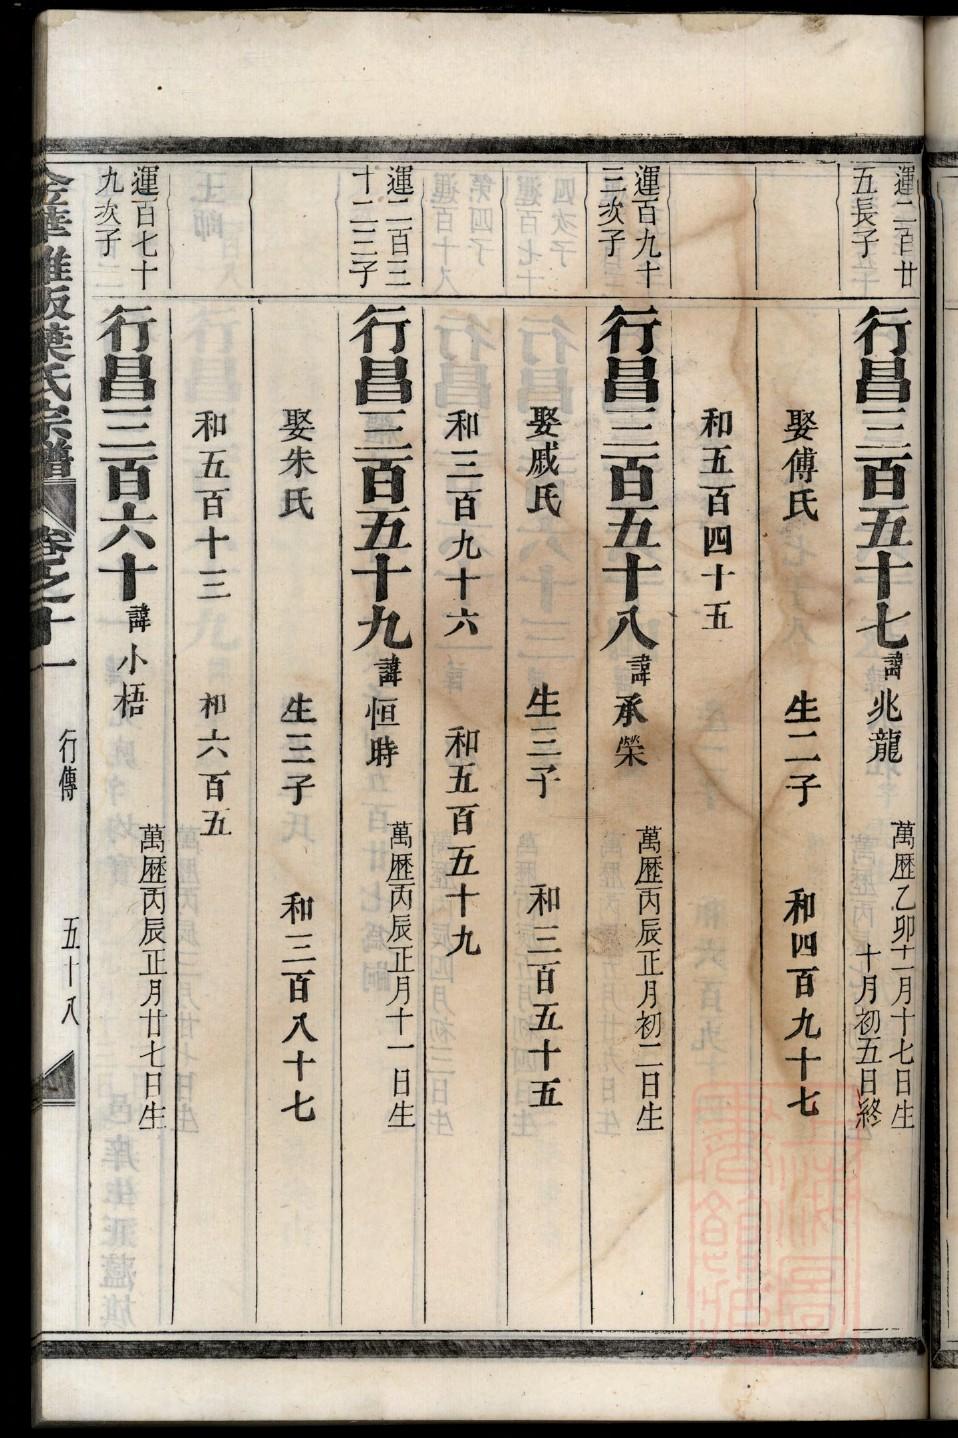 運二百廿
五長子
行昌三百五十七諱兆龍
萬歴乙卯十一月十七日生
十月初五日終
娶傅氏 生二子 和四百九十七
和五百四十五
運百九十
三次子
行昌三百五十八諱承榮
萬歴丙辰正月初二日生
娶戚氏 生三子 和三百五十五
和三百九十六 和五百五十九
運二百三
十二三子
行昌三百五十九諱恒時
萬歴丙辰正月十一日生
娶朱氏 生三子 和三百八十七
和五百十三 和六百五
運百七十
九次子
行昌三百六十諱小梧
萬歴丙辰正月廿七日生
葉氏宗譜 卷之十一 行傳 五十八